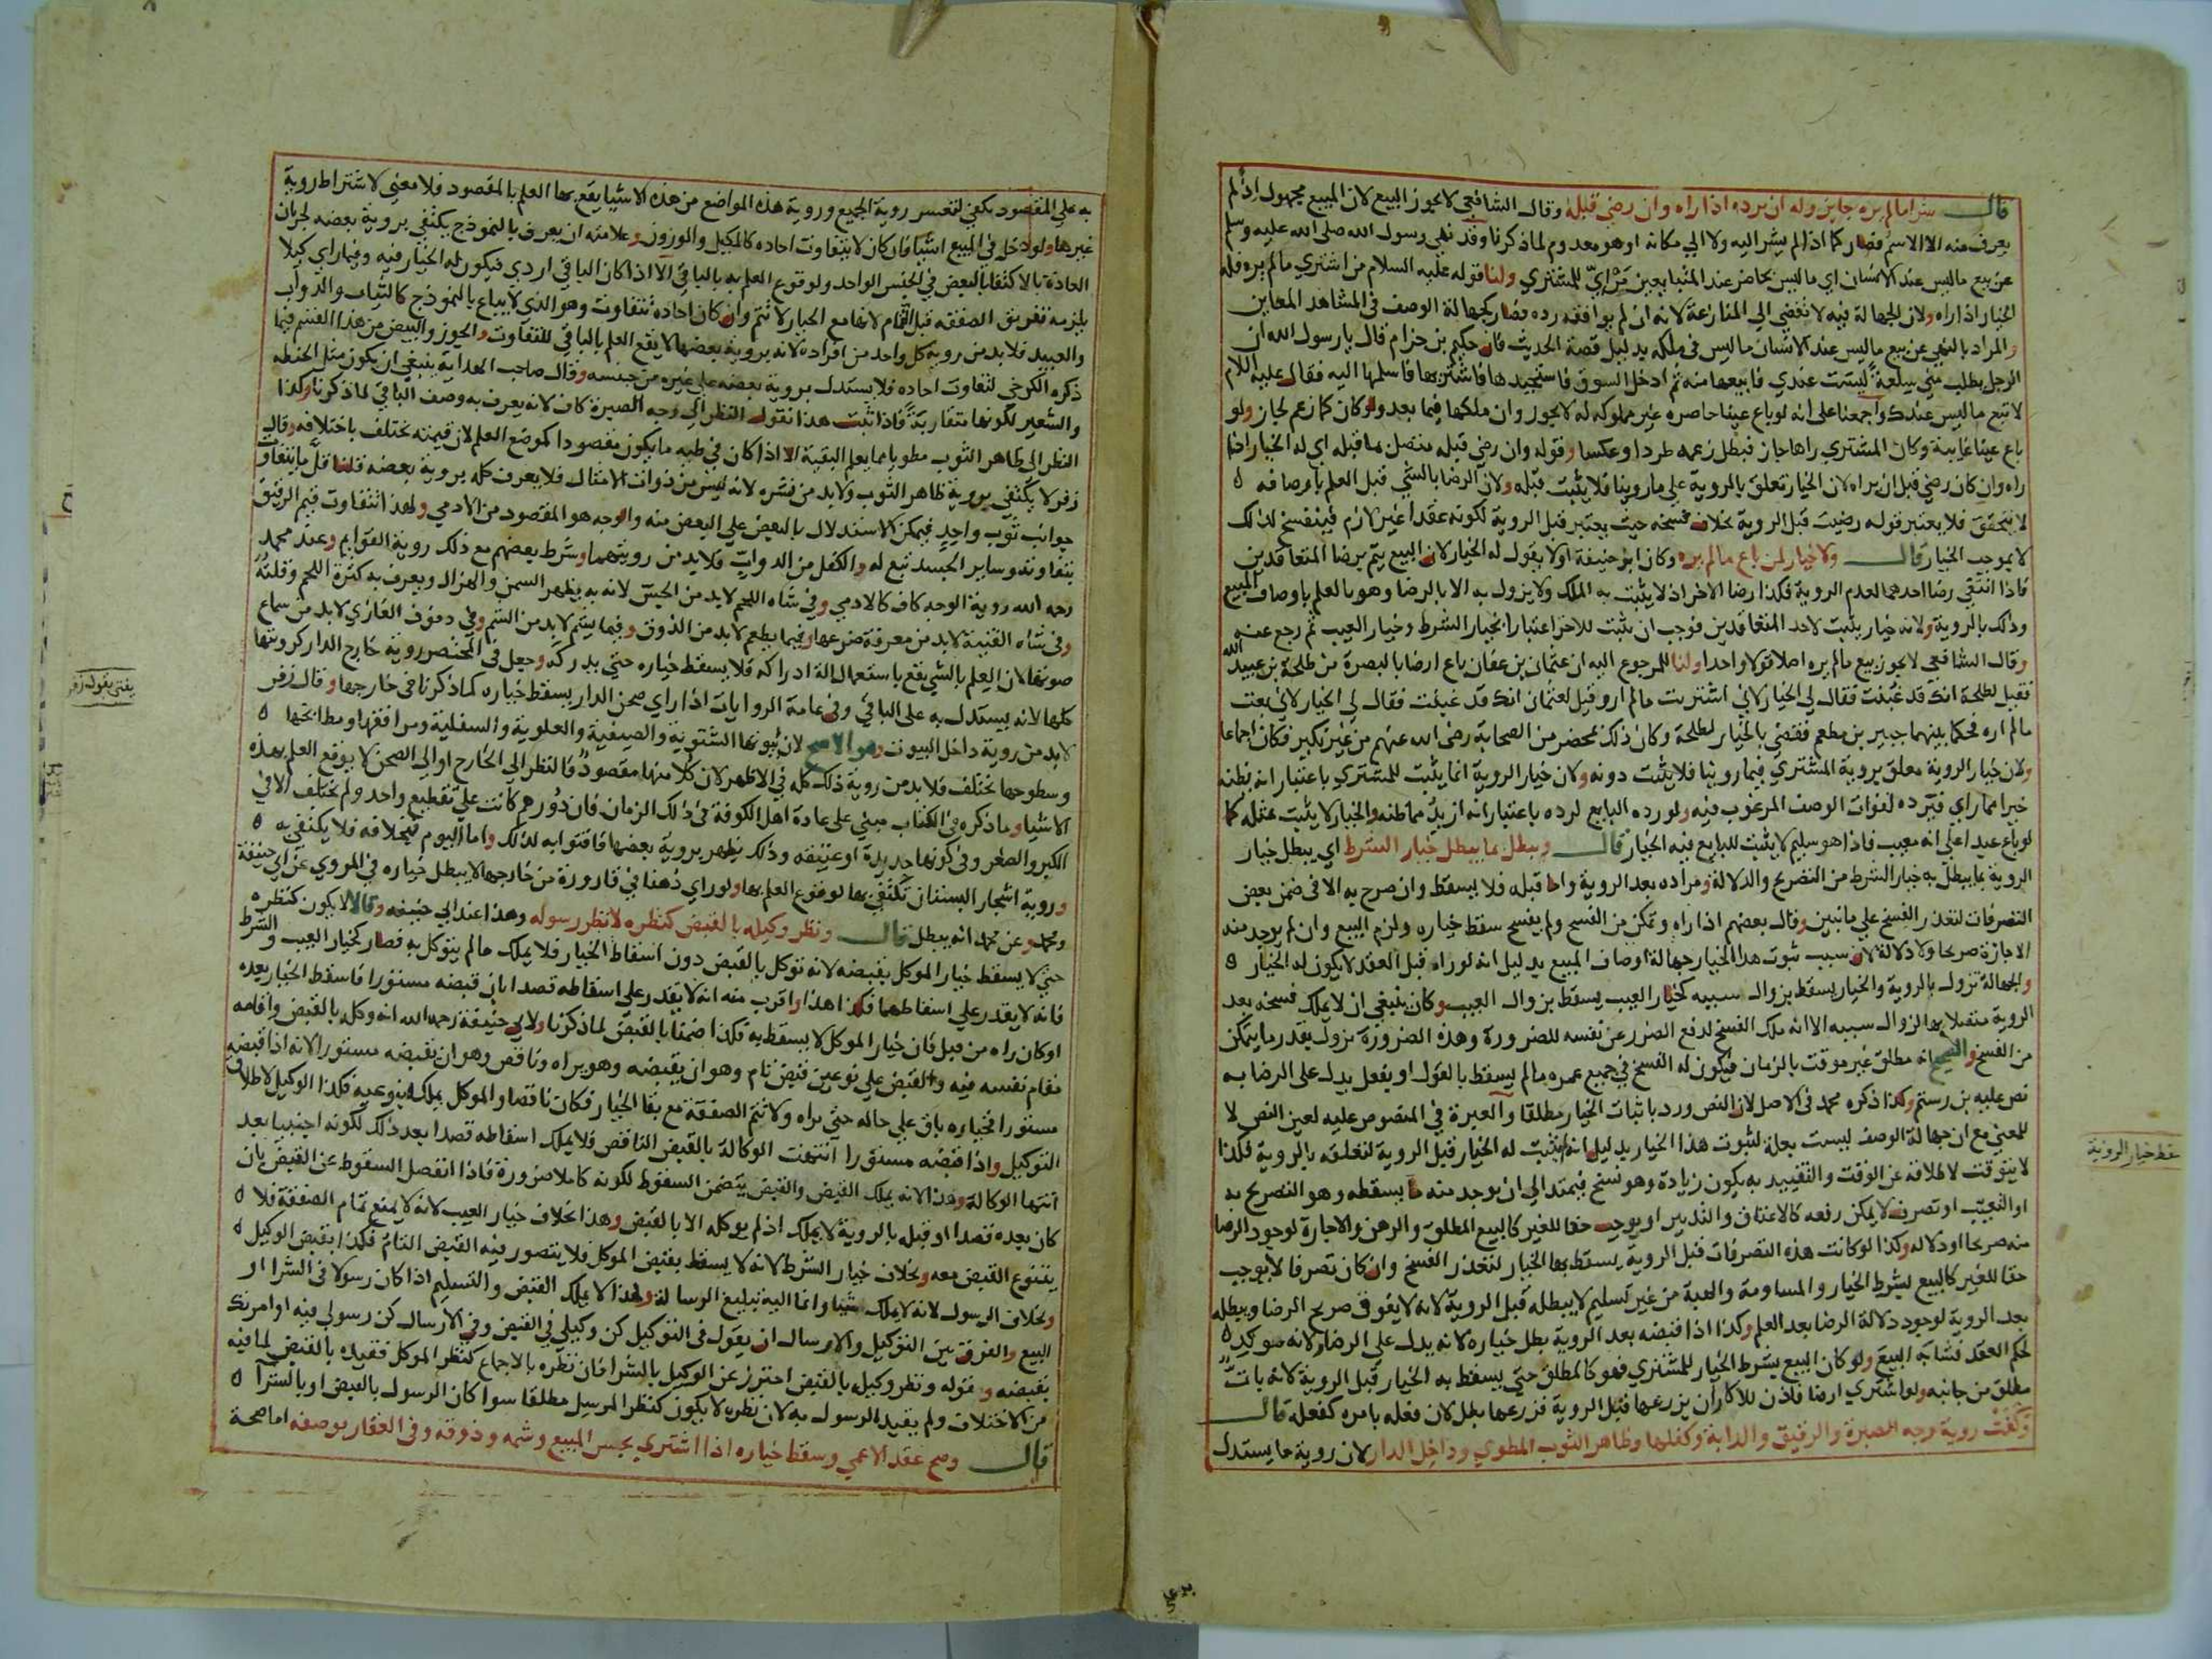 قال شرا مالم يره جايز وله ان يرده اذا راه وان رضي قبله وقال الشافعي لا يجوز البيع لان المبيع مجهول اذ لم
يعرف منه الا الاسم فصار كما اذا لم يشر اليه ولا الي مكانه او هو معدوم لما ذكرنا وقد نهي رسول الله صلي الله عليه وسلم
عن بيع ما ليس عند الانسان اي ما ليس بحاضر عند المتبايعين مرئي للمشتري ولنا قوله عليه السلام من اشتري مالم يره فله
الخيار اذا راه ولان الجهالة فيه لا تفضي الي المنازعة لانه ان لم يوافقه رده فصار كجهالة الوصف في المشاهد المعاين
والمراد بالنهي عن بيع ما ليس عند الانسان ما ليس في ملكه بدليل قصة الحديث فان حكيم بن حزام قال يا رسول الله ان
الرجل يطلب مني سلعة ليست عندي فابيعها منه ثم ادخل السوق فاستجيدها فاشتريها فاسلمها اليه فقال عليه السلام
لا تبع ما ليس عندك واجمعنا علي انه لو باع عينا حاضره غير مملوكه له لا يجوز وان ملكها فيما بعد ولو كان كما زعم لجاز ولو
باع عينا غايبة وكان المشتري راها جاز فبطل زعمه طردا وعكسا وقوله وان رضي قبله متصل بما قبله اي له الخيار اذا
راه وان كان رضي قبل ان يراه لان الخيار تعلق بالروية علي ما روينا فلا يثبت قبله ولان الرضا بالشي قبل العلم باوصافه
لا يتحقق فلا يعتبر قوله رضيت قبل الروية بخلاف فسخه حيث يعتبر قبل الروية لكونه عقدا غير لازم فينفسخ لذلك
لا بموجب الخيار قال ولا خيار لمن باع مالم يره وكان ابو حنيفة اولا يقول له الخيار لان البيع يتم برضا المتعاقدين
فاذا انتفي رضا احدهما لعدم الروية فكذا رضا الاخر اذ لا يثبت به الملك ولا يزول به الا بالرضا وهو بالعلم باوصاف المبيع
وذلك بالروية ولانه خيار يثبت لاحد المتعاقدين فوجب ان يثبت للاخر اعتبارا بخيار الشرط وخيار العيب ثم رجع عنه
وقال الشافعي لا يجوز بيع مالم يره اصلا قولا واحدا ولنا للمرجوع اليه ان عثمان بن عفان باع ارضا بالبصرة من طلحة بن عبيد الله
فقيل لطلحة انك قد غبنت فقال لي الخيار لاني اشتريت مالم اره وقيل لعثمان انك قد غبنت فقال لي الخيار لاني بعت
مالم اره فحكما بينهما جبير بن مطعم فقضي بالخيار لطلحة وكان ذلك بمحضر من الصحابة رضي الله عنهم من غير نكير فكان اجماعا
ولان خيار الروية معلق بروية المشتري فيما روينا فلا يثبت دونه ولان خيار الروية انما يثبت للمشتري باعتبار انه يظنه
خيرا مما راي فيرده لفوات الوصف المرغوب فيه ولو رده البايع لرده باعتبار انه ازيد مما ظنه والخيار لا يثبت بمثله كما
لو باع عبدا علي انه معيب فاذا هو سليم لا يثبت للبايع فيه الخيار قال ويبطل بما يبطل خيار الشرط اي يبطل خيار
الروية بما يبطل به خيار الشرط من التصريح والدلالة ومراده بعد الروية واما قبله فلا يسقط وان صرح به الا في ضمن بعض
التصرفات لتعذر الفسخ علي ما نبين وقال بعضهم اذا راه وتمكن من الفسخ ولم يفسخ سقط خياره ولزم البيع وان لم يوجد منه
الاجازة صريحا ولا دلالة لان سبب ثبوت هذا الخيار جهالة اوصاف المبيع بدليل انه لو راه قبل العقد لا يكون له الخيار
والجهالة تزول بالروية والخيار يسقط بزوال سببه كخيار العيب يسقط بزوال العيب وكان ينبغي ان لا يملك فسخه بعد
الروية متصلا بها لزوال سببه الا انه ملك الفسخ لدفع الضرر عن نفسه للضرورة وهذه الضرورة تزول بقدر ما يتمكن
من الفسخ والصحيح انه مطلق غير موقت بالزمان فيكون له الفسخ في جميع عمره مالم يسقط بالقول او يفعل يدل علي الرضا به
نص عليه بن رستم وكذا ذكره محمد في الاصل لان النص ورد باثبات الخيار مطلقا والعبرة في المنصوص عليه لعين النص لا
للمعني مع ان جهالة الوصف ليست بعلة لثبوت هذا الخيار بدليل انه لم يثبت له الخيار قبل الروية لتعلقه بالروية فكذا
لا يتوقت لاطلاقه عن الوقت والتقييد به يكون زيادة وهو نسخ فيمتد الي ان يوجد منه ما يسقطه وهو التصريح به
او التعيب او تصرف لا يمكن رفعه كالاعتاق والتدبير او يوجب حقا للغير كالبيع المطلق والرهن والاجارة لوجود الرضا
منه صريحا او دلاله وكذا لو كانت هذه التصرفات قبل الروية يسقط بها الخيار لتعذر الفسخ وان كان تصرفا لا يوجب
حقا للغير كالبيع بشرط الخيار والمساومة والهبة من غير تسليم لا يبطله قبل الروية لانه لا يفوق صريح الرضا ويبطله
بعد الروية لوجود دلالة الرضا بعد العلم وكذا اذا قبضه بعد الروية بطل خياره لانه يدل علي الرضا ولانه موكد
لحكم العقد فشابه البيع ولو كان البيع بشرط الخيار للمشتري فهو كالمطلق حتي يسقط به الخيار قبل الروية لانه بات
مطلق من جانبه ولو اشتري ارضا فاذن للاكار ان يزرعها قبل الروية فزرعها بطل لان فعله بامره كفعله قال
وكفت روية وجه الصبرة والرقيق والدابة وكفلها وظاهر الثوب المطوي وداخل الدار لان روية ما يستدل
سقط خيار الروية
به علي المقصود تكفي لتعسر روية الجميع وروية هذه المواضع من هذه الاشيا يقع بها العلم بالمقصود فلا معني لاشتراط روية
غيرها ولو دخل في المبيع اشيا فان كان لا يتفاوت احاده كالمكيل والموزون وعلامته ان يعرف بالنموذج يكتفي بروية بعضه لجريان
العادة بالاكتفا بالبعض في الجنس الواحد ولوقوع العلم به بالباقي الا اذا كان الباقي اردي فيكون له الخيار فيه وفيما راي كيلا
يلزمه تفريق الصفقه قبل التمام لانها مع الخيار لا تتم وان كان احاده تتفاوت وهو الذي لا يباع بالنموذج كالثياب والدواب
والعبيد فلا بد من روية كل واحد من افراده لانه بروية بعضها لا يقع العلم بالباقي للتفاوت والجوز والبيض من هذا القسم فيما
ذكره الكرخي لتفاوت احاده فلا يستدل بروية بعضه علي غيره من جنسه وقال صاحب الهداية ينبغي ان يكون مثل الحنطه
والشعير لكونها متقاربة فاذا ثبت هذا نقول النظر الي وجه الصبرة كاف لانه يعرف به وصف الباقي لما ذكرنا وكذا
النظر الي ظاهر الثوب مطويا مما يعلم البقية الا اذا كان في طيه ما يكون مقصودا كموضع العلم لان قيمته تختلف باختلافه وقال
زفر لا يكتفي بروية ظاهر الثوب ولا بد من نشره لانه ليس من ذوات الامثال فلا يعرف كله بروية بعضه قلنا قل ما يتفاوت
جوانب ثوب واحد فيمكن الاستدلال بالبعض علي البعض منه والوجه هو المقصود من الادمي ولهذا تتفاوت قيم الرقيق
بتفاوته وساير الجسد تبع له والكفل من الدواب فلا بد من رويتهما وشرط بعضهم مع ذلك روية القوايم وعند محمد
رحمه الله روية الوجه كاف كالادمي وفي شاه اللحم لا بد من الجس لانه به يظهر السمن والهزال ويعرف به كثرة اللحم وقلته
وفي شاه القنية لا بد من معرفة ضرعها وفيما يطعم لا بد من الذوق وفيما يشم لا بد من الشم وفي دفوف الغازي لا بد من سماع
صوتها لان العلم بالشي يقع باستعمال الة ادراكه فلا يسقط خياره حتي يدركه وجعل في المختصر روية خارج الدار كرويتها
كلها لانه يستدل به علي الباقي وفي عامة الروايات اذا راي صحن الدار يسقط خياره كما ذكرنا في خارجها وقال زفر
لا بد من روية داخل البيوت وهو الاصح لان بيوتها الشتوية والصيفية والعلوية والسفلية ومرافقها ومطابخها
وسطوحها تختلف فلا بد من روية ذلك كله في الاظهر لان كلا منها مقصود والنظر الي الخارج او الي الصحن لا يوقع العلم بهذه
الاشيا وما ذكره في الكتاب مبني علي عادة اهل الكوفة في ذلك الزمان فان دورهم كانت علي تقطيع واحد ولم تختلف الا في
الكبر والصغر وفي كونها جديدة او عتيقه وذلك يظهر بروية بعضها فافتوا به لذلك واما اليوم فبخلافه فلا يكتفي به
وروية اشجار البستان تكتفي بها لوقوع العلم بها ولو راي دهنا في قارورة من خارجها لا يبطل خياره في المروي عن ابي حنيفة
ومحمد وعن محمد انه يبطل قال ونظر وكيله بالقبض كنظره لا نظر رسوله وهذا عند ابي حنيفه وقالا لا يكون كنظره
حتي لا يسقط خيار الموكل بقبضه لانه توكل بالقبض دون اسقاط الخيار فلا يملك مالم يتوكل به فصار كخيار العيب والشرط
فانه لا يقدر علي اسقاطهما فكذا هذا واقرب منه انه لا يقدر علي اسقاطه قصدا بان قبضه مستورا فاسقط الخيار بعده
او كان راه من قبل فان خيار الموكل لا يسقط به فكذا ضمنا بالقبض لما ذكرنا ولابي حنيفة رحمه الله انه وكله بالقبض واقامه
مقام نفسه فيه والقبض علي نوعين قبض تام وهو ان يقبضه وهو يراه وناقص وهو ان يقبضه مستورا لانه اذا قبضه
مستورا فخياره باق علي حاله حتي يراه ولا تتم الصفقة مع بقا الخيار فكان ناقصا والموكل يملكه بنوعيه فكذا الوكيل لاطلاق
التوكيل واذا قبضه مستورا انتهت الوكالة بالقبض الناقص فلا يملك اسقاطه قصدا بعد ذلك لكونه اجنبيا بعد
انتها الوكالة وهذا لانه يملك القبض والقبض يتضمن السقوط لكونه كاملا ضرورة فاذا انفصل السقوط عن القبض بان
كان بعده قصدا او قبله بالروية لا يملك اذ لم يوكله الا بالقبض وهذا بخلاف خيار العيب لانه لا يمنع تمام الصفقة فلا
يتنوع القبض معه وبخلاف خيار الشرط لانه لا يسقط بقبض الموكل فلا يتصور فيه القبض التام فكذا بقبض الوكيل
وبخلاف الرسول لانه لا يملك شيا وانما اليه تبليغ الرسالة ولهذا لا يملك القبض والتسليم اذا كان رسولا في الشرا او
البيع والفرق بين التوكيل والارسال ان يقول في التوكيل كن وكيلي في القبض وفي الارسال كن رسولي فيه او امرتك
بقبضه وقوله ونظر وكيله بالقبض احترز عن الوكيل بالشرا فان نظره بالاجماع كنظر الموكل فقيده بالقبض لما فيه
من الاختلاف ولم يقيد الرسول به لان نظره لا يكون كنظر المرسل مطلقا سوا كان الرسول بالقبض او بالشرا
قال وصح عقد الاعمي وسقط خياره اذا اشتري بجس المبيع وشمه وذوقه وفي العقار بوصفه اما صحة
يفتي بقول زفر